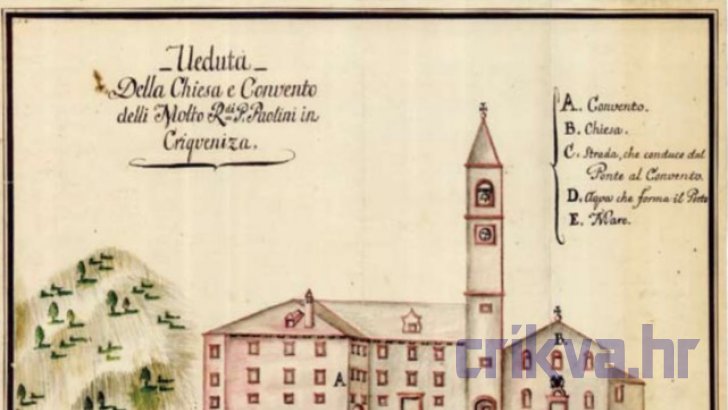 Veduta
Della Chiesa e Convento
delli Molto R.di P. Paolini in
Criqueniza.
A. Convento.
B. Chiesa.
C. Strada, che conduce dal
Ponte al Convento.
D. Aqva che forma il Porto
E. Mare.
B.
A
crikva.hr